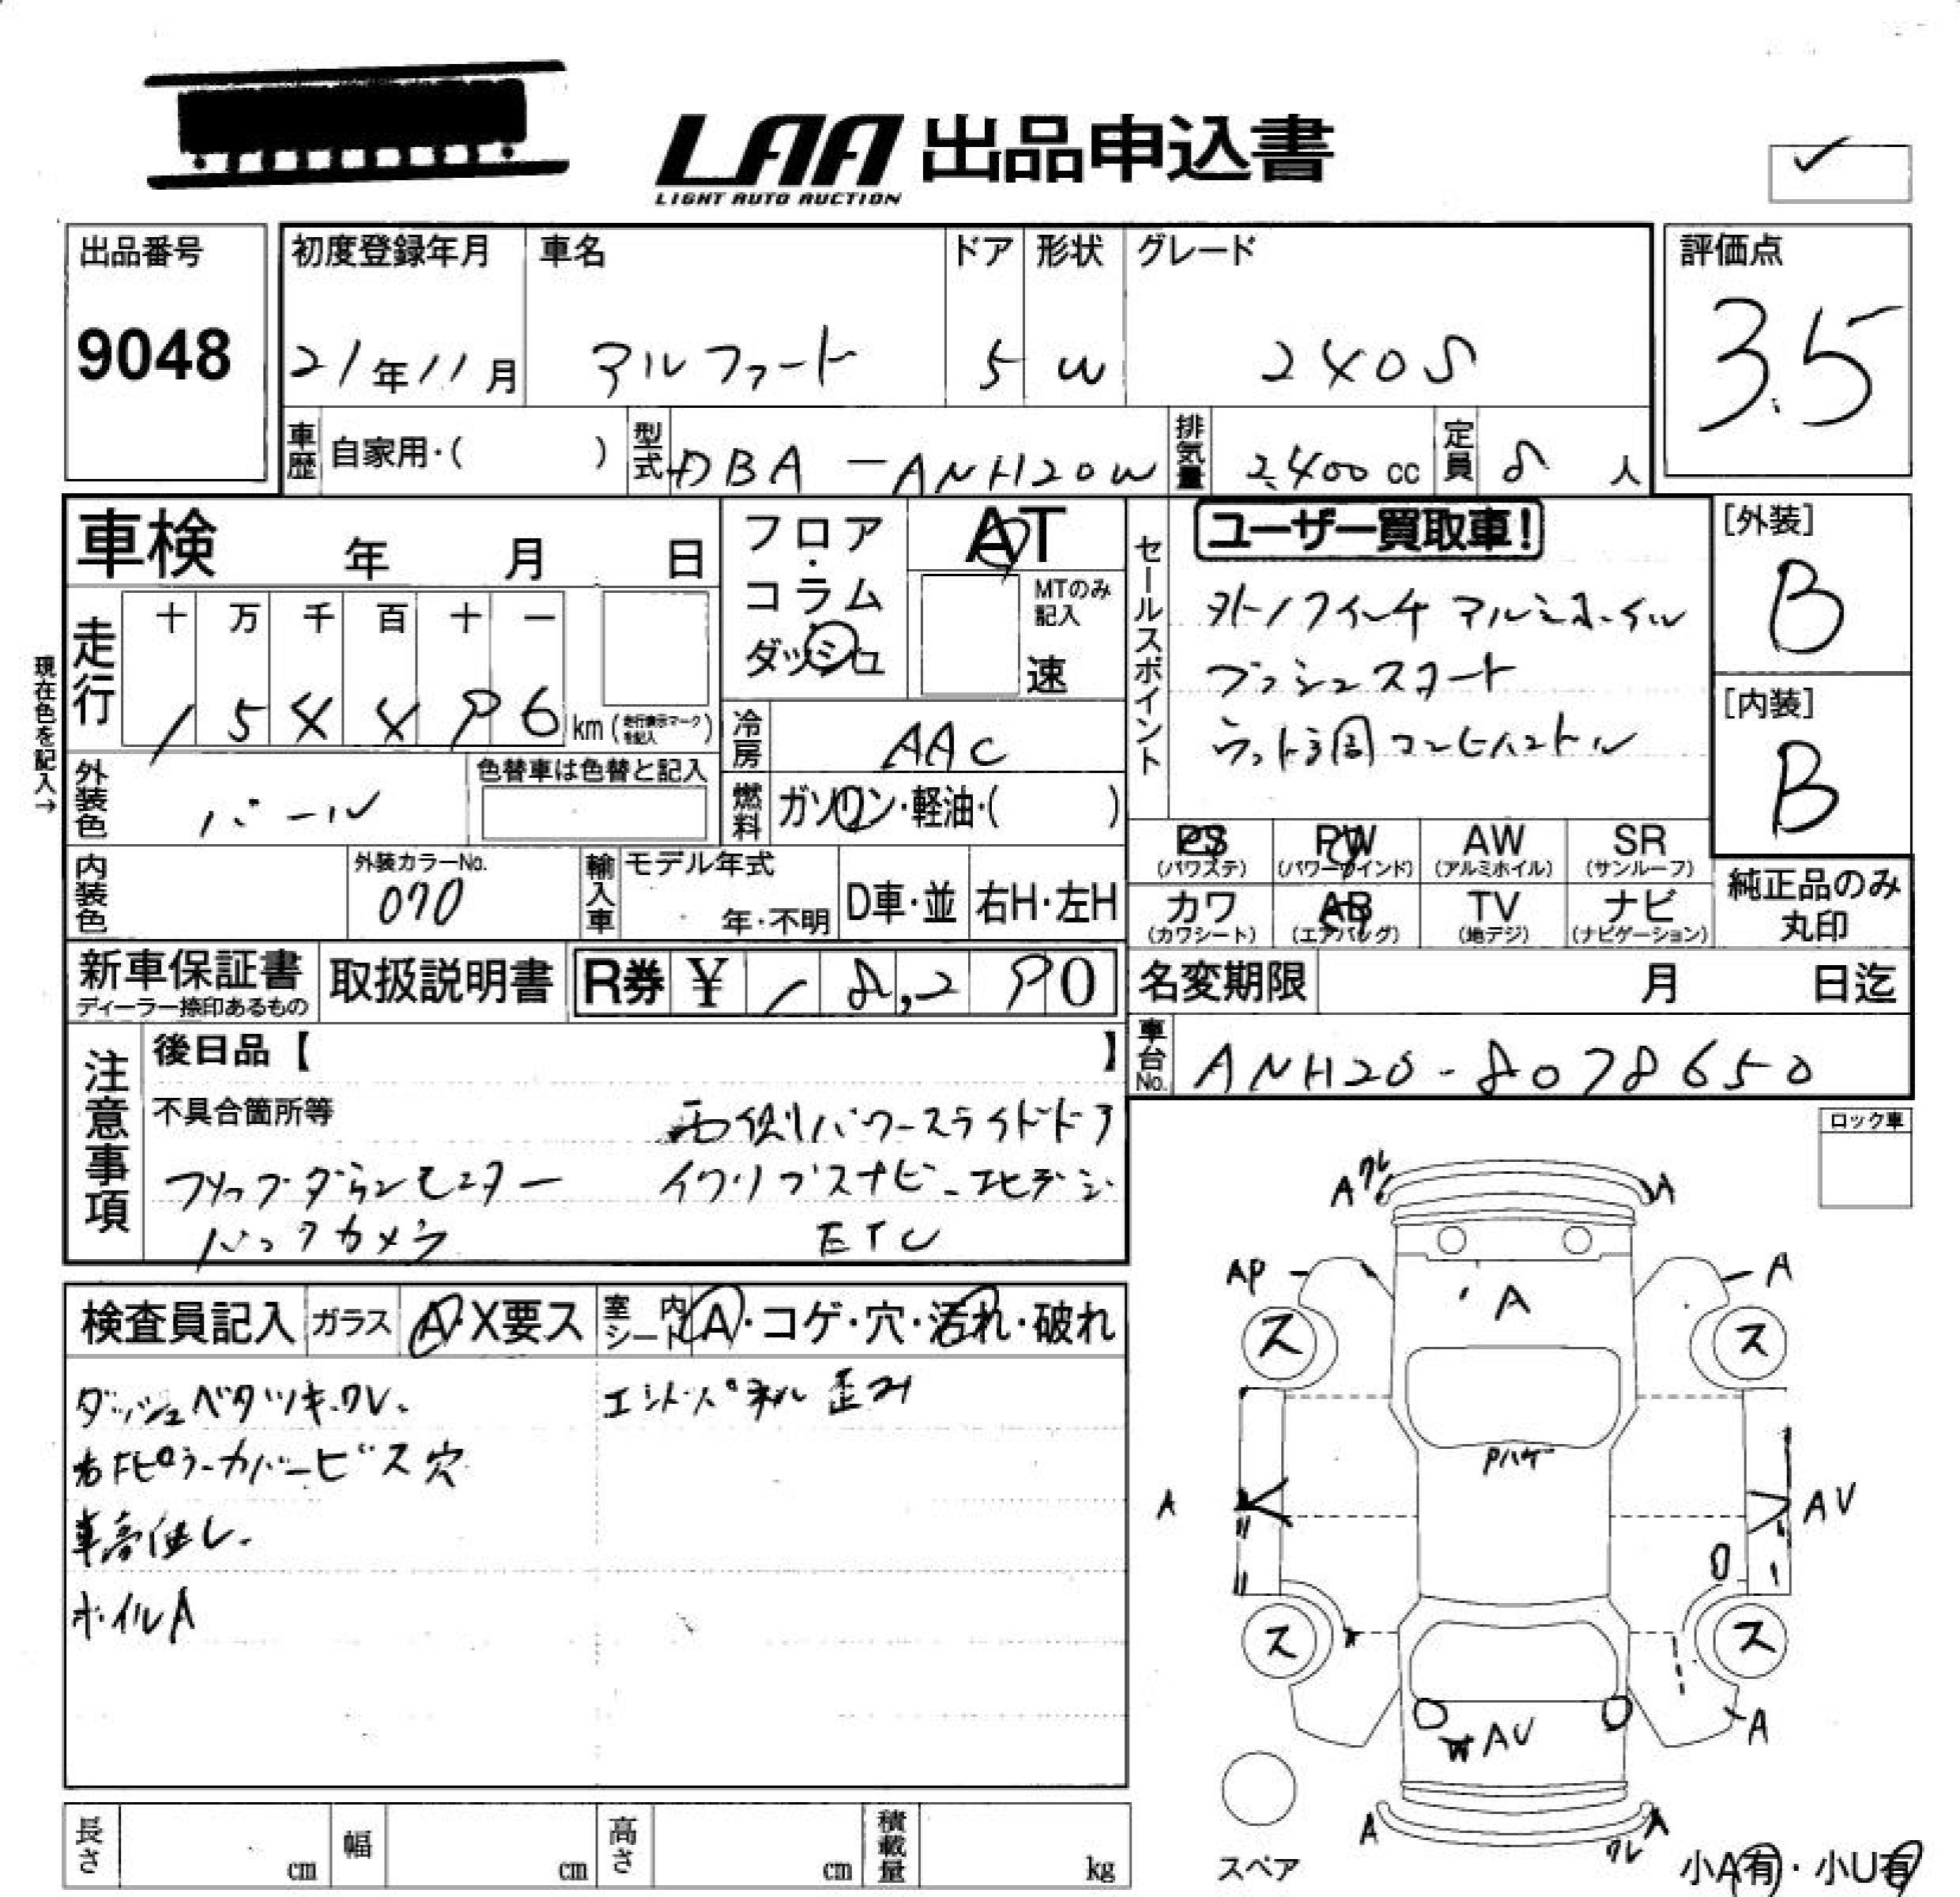 LAA 出品申込書
LIGHT AUTO AUCTION
出品番号
9048
初度登録年月
21年11月
車名
アルファード
ドア
5
形状
W
グレード
240S
評価点
3.5
車歴
自家用・( )
型式
DBA-ANH20W
排気量
2,400 cc
定員
8 人
車検 年 月 日
フロア・コラム
ダッシュ
AT
MTのみ記入
速
セールスポイント
ユーザー買取車!
外17インチアルミホイル
プッシュスタート
ウッド調コンビハンドル
[外装]
B
[内装]
B
現在色を記入→
走行
十 万 千 百 十 一
1 5 4 4 9 6 km (走行表示マークを記入)
冷房
AAC
外装色
パール
色替車は色替と記入
燃料
ガソリン・軽油・( )
PS
(パワステ)
PW
(パワーウインド)
AW
(アルミホイル)
SR
(サンルーフ)
カワ
(カワシート)
AB
(エアバッグ)
TV
(地デジ)
ナビ
(ナビゲーション)
純正品のみ丸印
内装色
外装カラーNo.
070
輸入車
モデル年式
年・不明
D車・並
右H・左H
新車保証書
ディーラー捺印あるもの
取扱説明書
R券 ¥ 18,290
名変期限 月 日迄
車台No.
ANH20-8078650
注意事項
後日品【 】
不具合箇所等
両側パワースライドドア
フリップダウンモニター
イクリプスナビ
バックカメラ
ETC
ロック車
検査員記入
ガラス
A・X要ス
室内シート
A・コゲ・穴・汚れ・破れ
ダッシュベタツキ.ワレ.
エンドパネル歪み
右Fピラーカバービス穴
車高低し.
ホイルA
A ワレ A
AP A
A
ス ス
Pハゲ
A AV
ス ス
W AV A
A ワレ A
スペア
小A有・小U有
長さ cm
幅 cm
高さ cm
積載量 kg